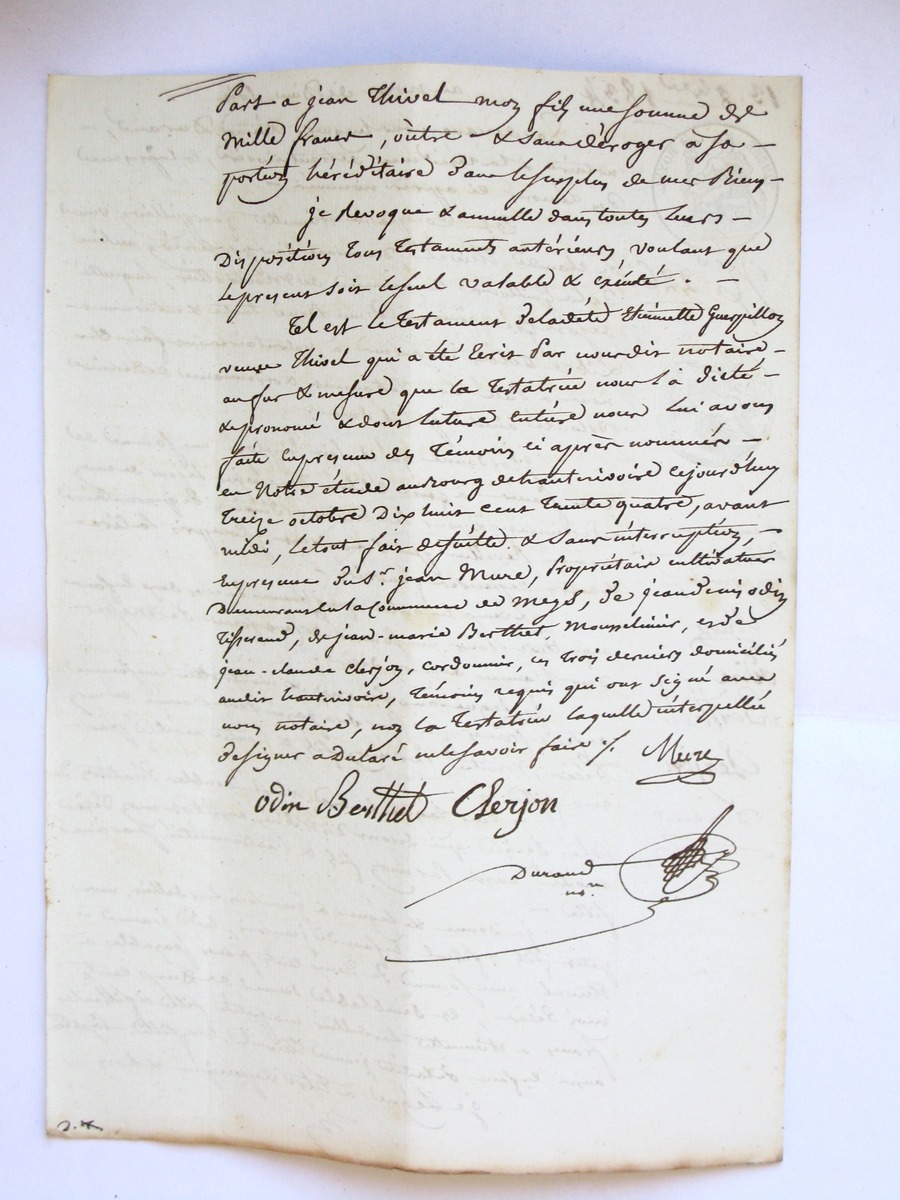 Part a jean Thivel mon fils une somme de
mille francs, outre & sans déroger à sa —
portion héréditaire dans le surplus de mes Biens —
je Revoque & annulle dans toutes leurs —
Dispositions tous Testaments antérieurs, voulant que
le present soit le seul valable & exécuté. —
Tel est le Testament de ladite Etiennette Guerpillon
veuve Thivel qui a été Ecrit Par nous dit notaire —
au fur & mesure que la Testatrice nous l'à dicté —
& prononcé & dont lecture entière nous lui avons
faite en presence des Témoins ci après nommés —
en Notre étude au Bourg de hauterivoire cejourd'huy
Treize octobre Dix huit cent Trente quatre, avant
midi, le tout fait de suitte & sans interruption, —
En presence du Sr. jean Mure, Propriétaire cultivateur
Demeurant en la Commune de Meys, de jean denis odin
Tisserand, de jean-marie Berthet, Mousselinier, et de
jean-claude Clerjon, cordonnier, ces trois derniers domiciliés
audit hauterivoire, Témoins requis qui ont signé avec
nous notaire, non la Testatrice laquelle interpellée
de signer a Déclaré ne le savoir faire ./. Mure
odin Berthet Clerjon
Durand
nore.